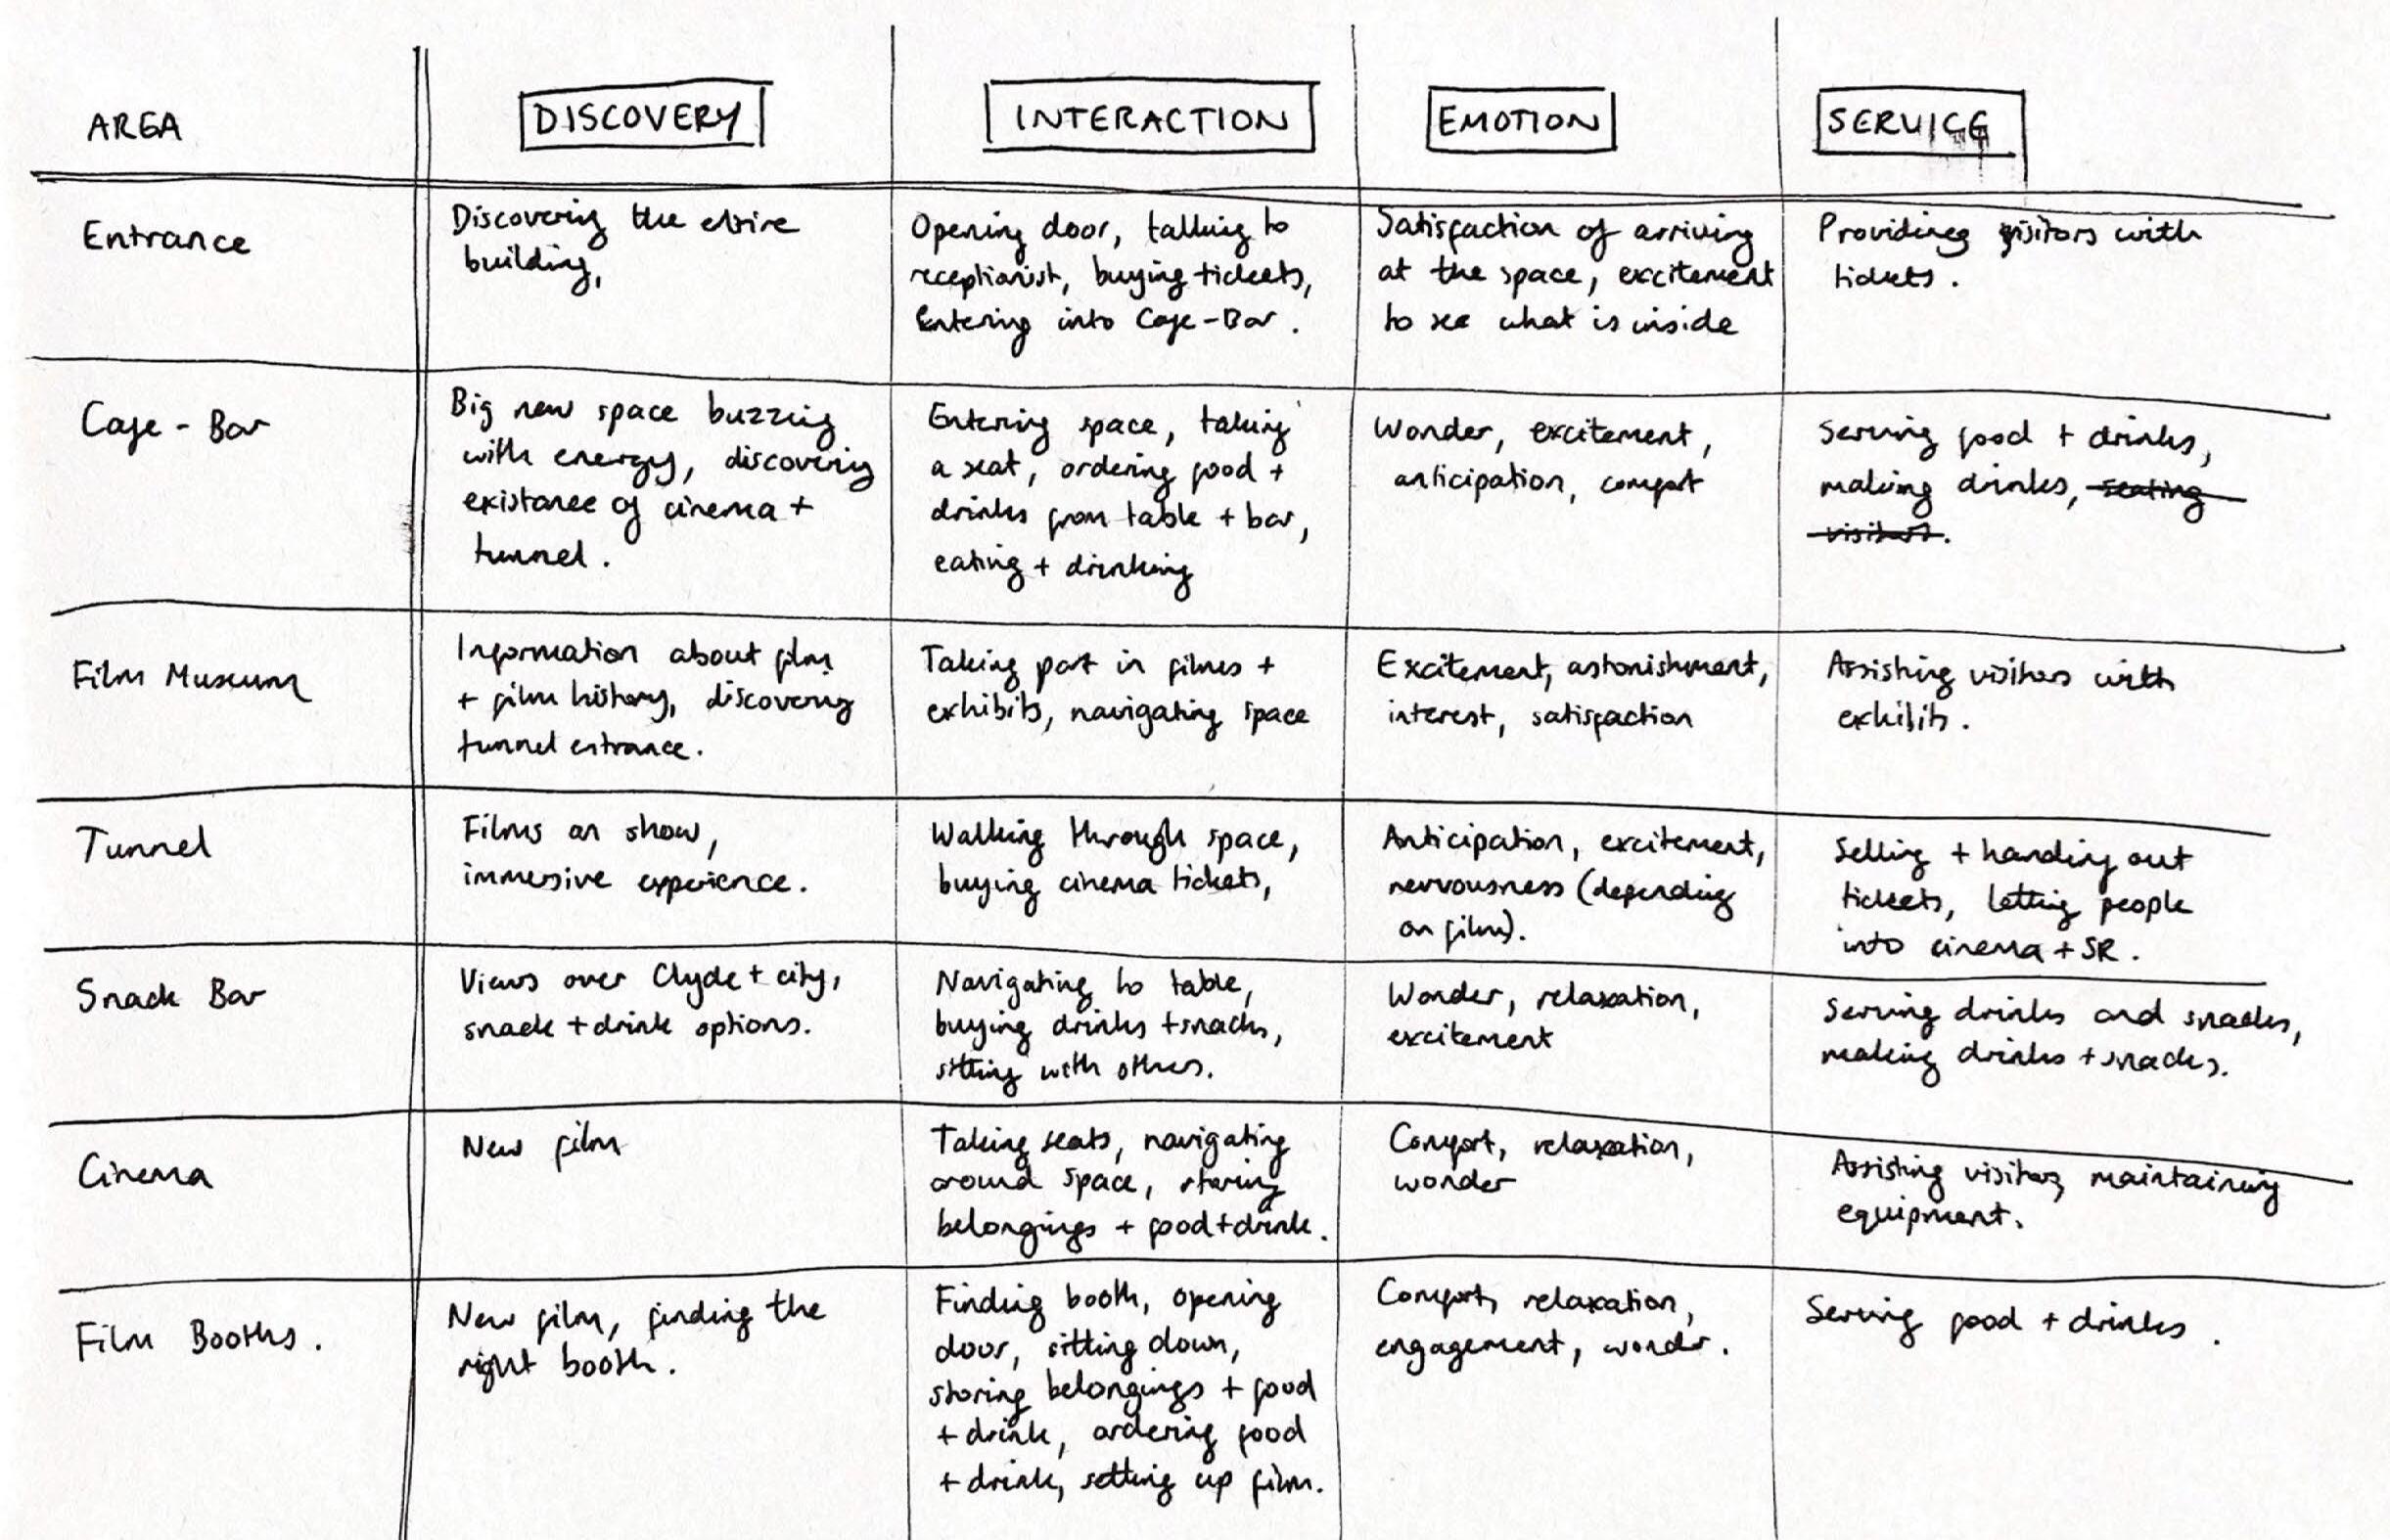 AREA
DISCOVERY
INTERACTION
EMOTION
SERVICE
Entrance
Discovering the entire
building,
Opening door, talking to
receptionist, buying tickets,
Entering into Cafe-Bar.
Satisfaction of arriving
at the space, excitement
to see what is inside
Providing visitors with
tickets.
Cafe - Bar
Big new space buzzing
with energy, discovering
existance of cinema +
tunnel.
Entering space, taking
a seat, ordering food +
drinks from table + bar,
eating + drinking
Wonder, excitement,
anticipation, comfort
Serving food + drinks,
making drinks, seating
visitors.
Film Museum
Information about film
+ film history, discovering
tunnel entrance.
Taking part in films +
exhibits, navigating space
Excitement, astonishment,
interest, satisfaction
Assisting visitors with
exhibits.
Tunnel
Films on show,
immersive experience.
Walking through space,
buying cinema tickets,
Anticipation, excitement,
nervousness (depending
on film).
Selling + handing out
tickets, letting people
into cinema + SR.
Snack Bar
Views over Clyde + city,
snack + drink options.
Navigating to table,
buying drinks + snacks,
sitting with others.
Wonder, relaxation,
excitement
Serving drinks and snacks,
making drinks + snacks.
Cinema
New film
Taking seats, navigating
around space, storing
belongings + food + drink.
Comfort, relaxation,
wonder
Assisting visitors, maintaining
equipment.
Film Booths.
New film, finding the
right booth.
Finding booth, opening
door, sitting down,
storing belongings + food
+ drink, ordering food
+ drink, setting up film.
Comfort, relaxation,
engagement, wonder.
Serving food + drinks.